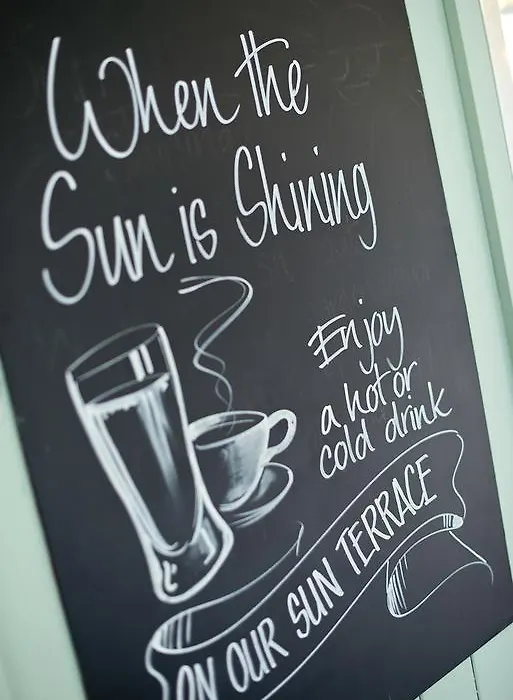 When the
Sun is Shining
Enjoy
a hot or
cold drink
ON OUR SUN TERRACE